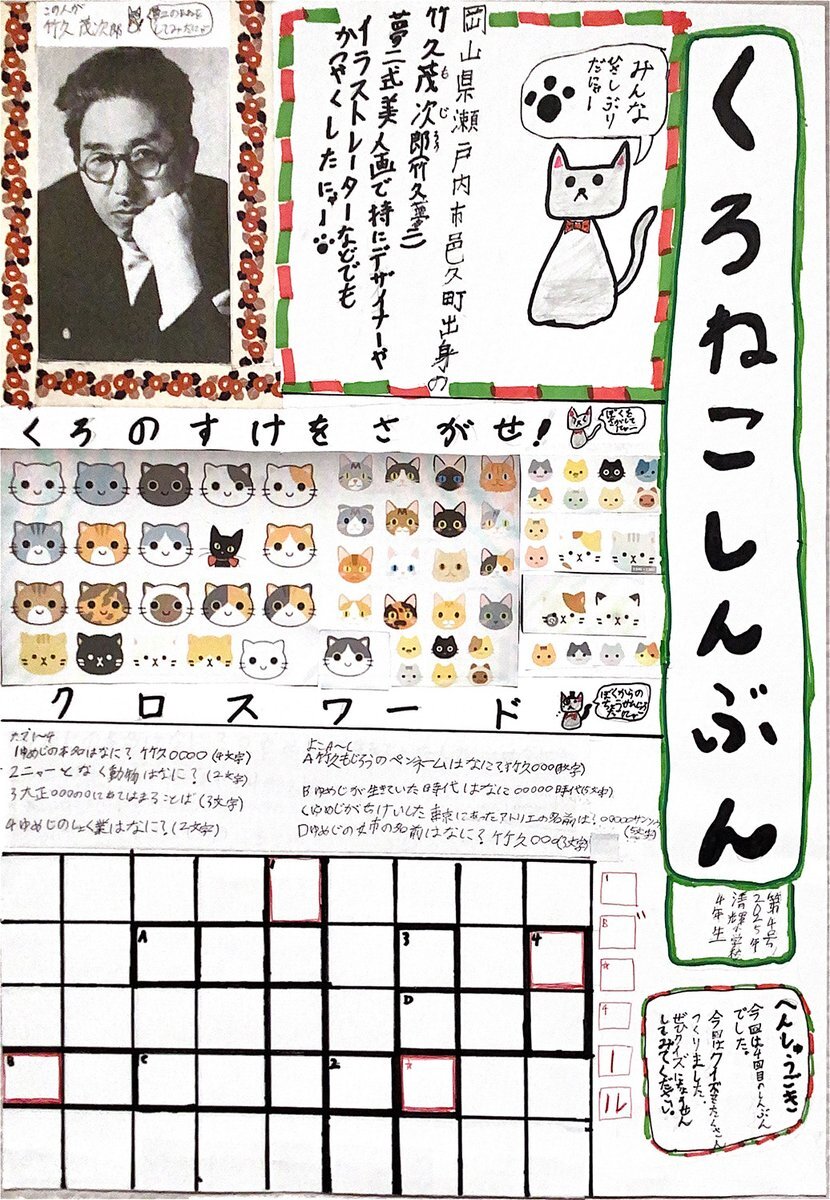 くろねこしんぶん
第4号
2025年
清輝小学校
4年生
みんな
ひさしぶり
だにゃー
岡山県瀬戸内市邑久町出身の
竹久茂次郎(竹久夢二)
もじろう
夢二式美人画で特にデザイナーや
イラストレーターなどでも
かつやくしたにゃー
この人が
竹久茂次郎
夢二のまねを
してみたにゃ
くろのすけをさがせ!
ぼくを
さがして
にゃー
クロスワード
ぼくからの
ちょうせんじょう
だにゃ
たて1〜4
1ゆめじの本名はなに?竹久○○○○(4文字)
2ニャーとなく動物はなに?(2文字)
3大正○○○の○にあてはまることば(3文字)
4ゆめじのしょく業はなに?(2文字)
よこA〜D
A竹久もじろうのペンネームはなに?竹久○○○(3文字)
Bゆめじが生きていた時代はなに○○○○○時代(5文字)
Cゆめじがせっけいした東京にあったアトリエの名前は?○○○○○サンソウ(5文字)
Dゆめじの妹の名前はなに?竹久○○○(3文字)
1
A
3
4
D
B
C
2
☆
1
B゛
☆
4
ー
ル
へんしゅうこうき
今回は4回目のしんぶん
でした。
今回はクイズをたくさん
つくりました
ぜひクイズにちょうせん
してみてください。